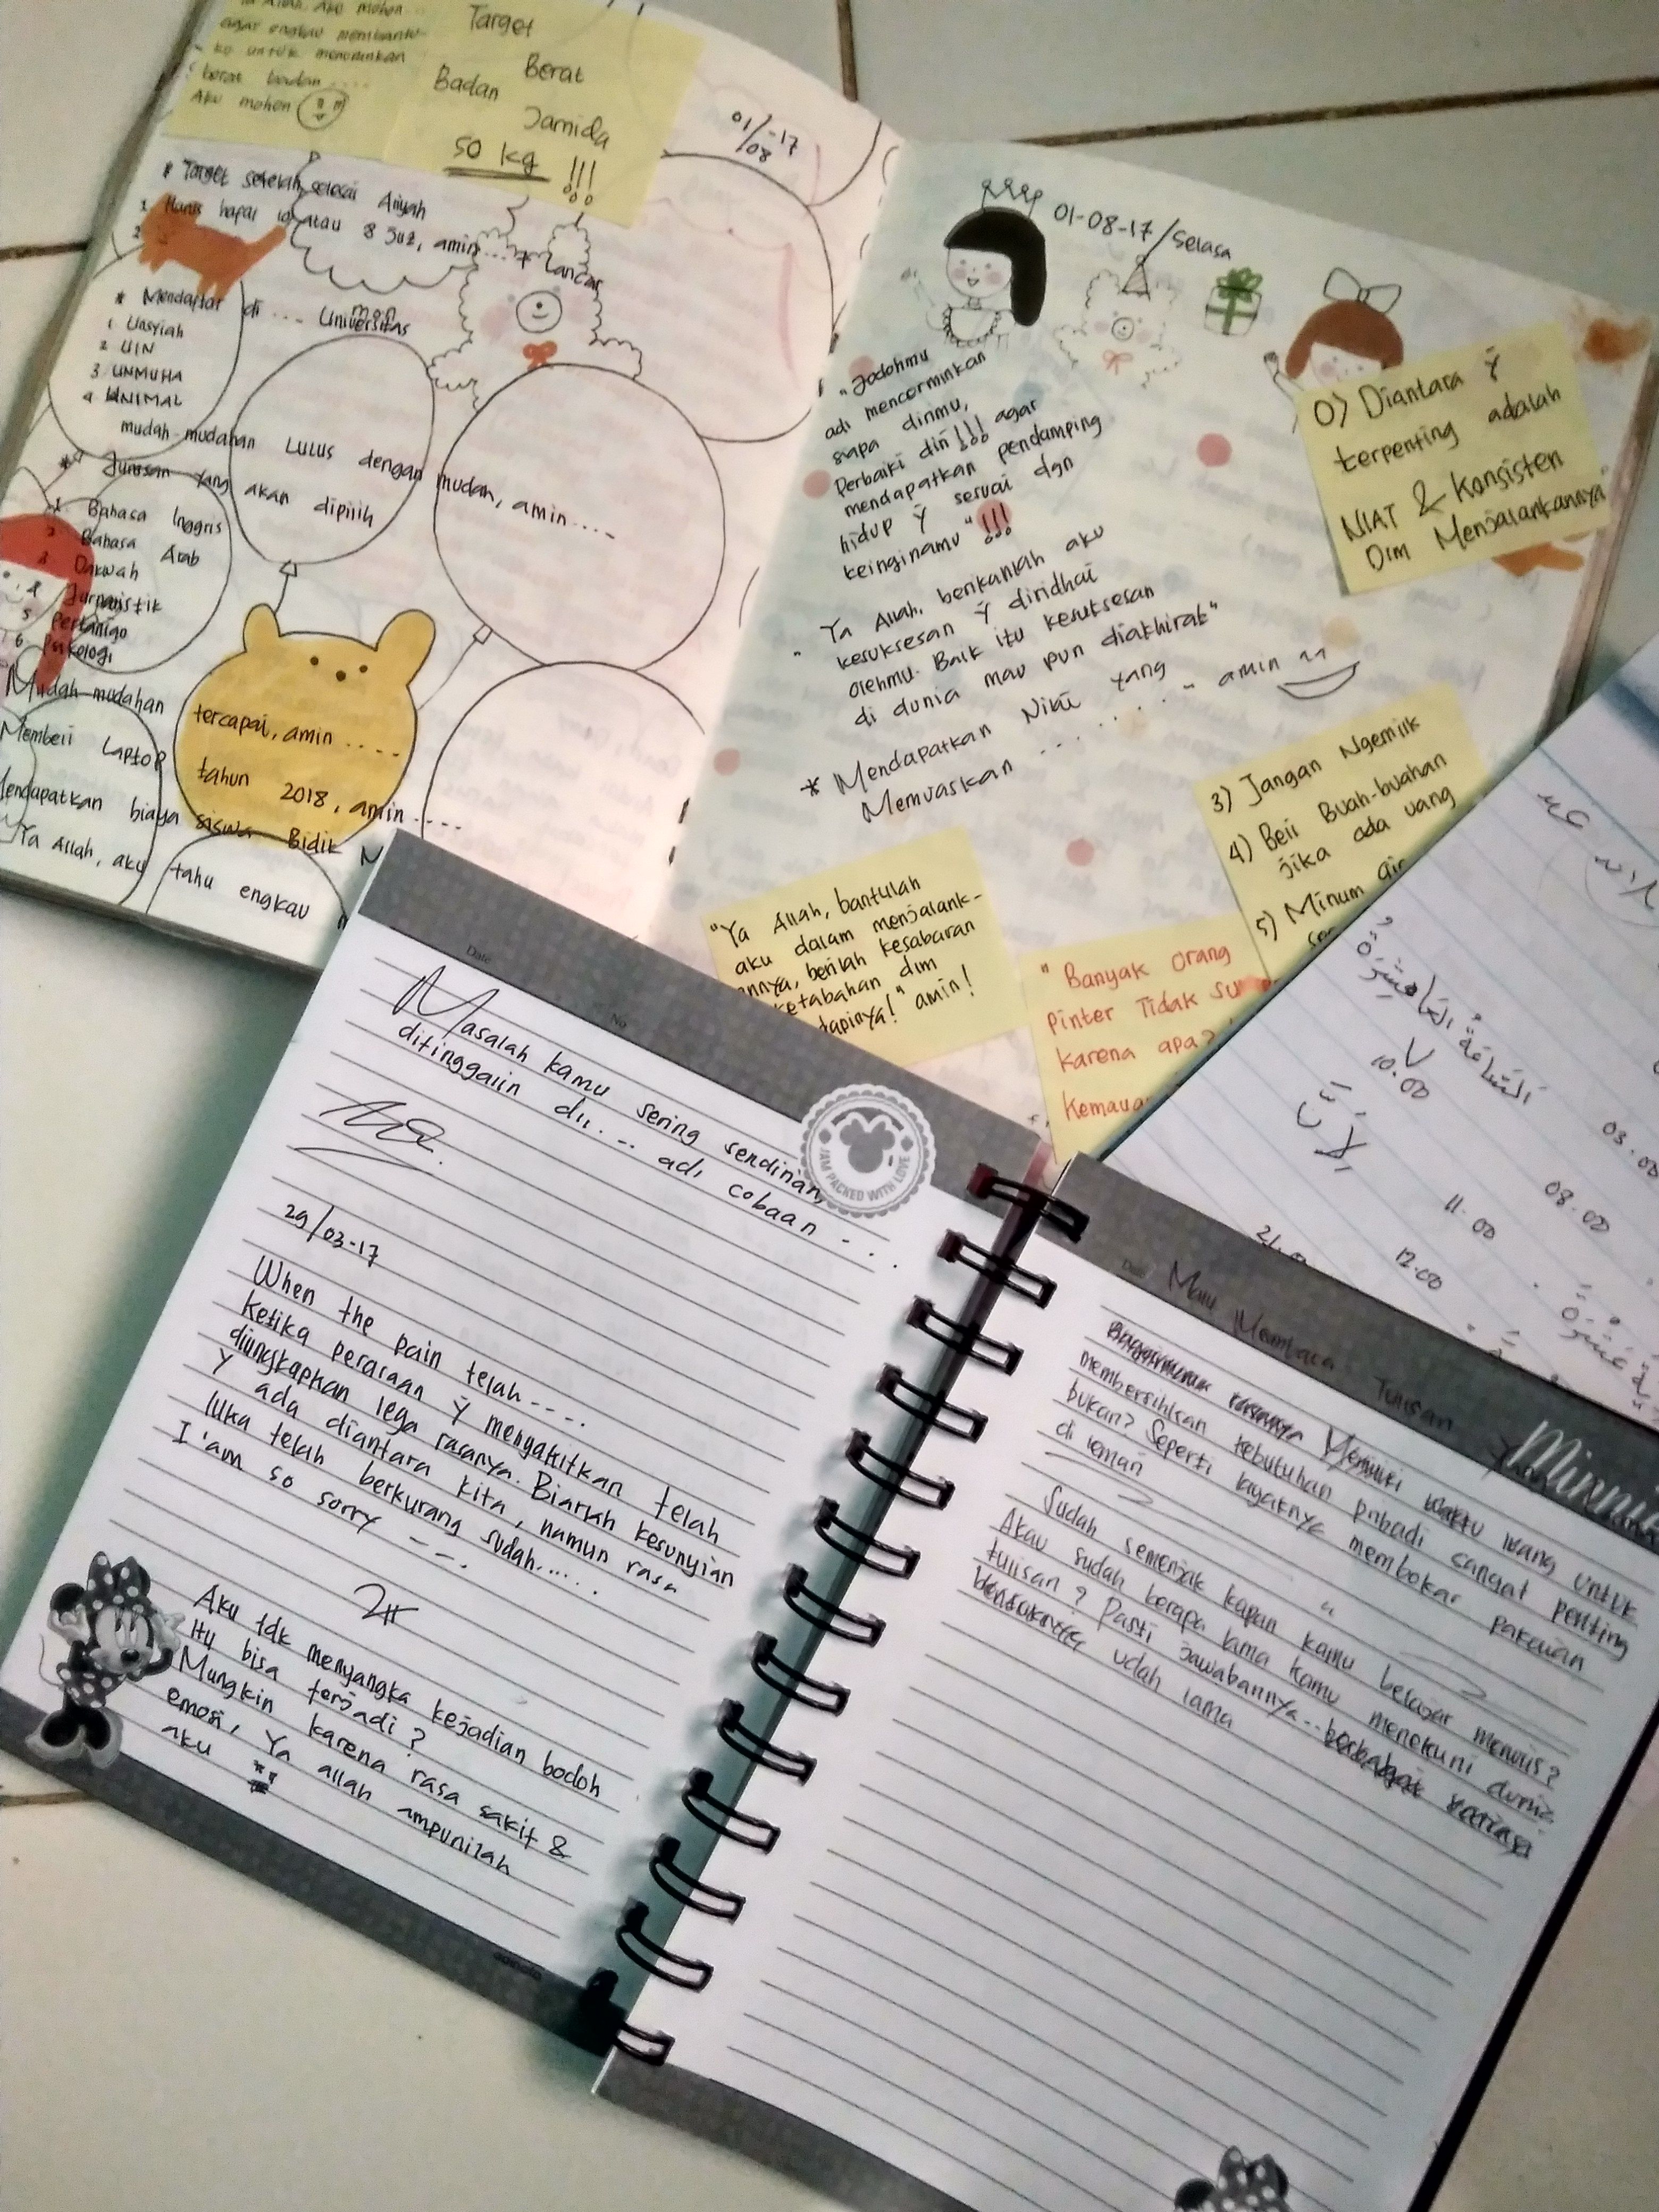 Ya Allah. Aku mohon
agar engkau membantu
ku untuk menaikkan
berat badan ....
Aku mohon
Target
Berat
Badan
Jamida
50 kg !!!
01/08-17
* Target setelah selesai Aliyah
1 Harus hapal 10 atau 8 Juz, amin.... + lancar
2
* Mendaftar di .... Universitas
mon
1 Unsyiah
2 UIN
3 UNMUHA
4 UNIMAL
mudah-mudahan Lulus dengan mudah, amin....
* Jurusan yang akan dipilih
1 Bahasa Inggris
2 Bahasa Arab
3 Dakwah
4 Jurnalistik
5 Pertanian
6 Psikologi
Mudah-mudahan tercapai, amin ....
Membeli Laptop tahun 2018, amin ....
Mendapatkan biaya siswa Bidik
Ya Allah, aku tahu engkau
01-08-17/Selasa
"Jodohmu
adl mencerminkan
siapa dirimu,
Perbaiki diri!!! agar
mendapatkan pendamping
hidup ȳ sesuai dgn
keinginamu" !!!
" Ya Allah, berikanlah aku
kesuksesan ȳ diridhai
olehmu. Baik itu kesuksesan
di dunia mau pun diakhirat"
* Mendapatkan Nilai yang
Memuaskan .......... amin
0) Diantara ȳ
terpenting adalah
NIAT & Konsisten
Dlm Menjalankannya
3) Jangan Ngemilk
4) Beli Buah-buahan
jika ada uang
5) Minum air
"Ya Allah, bantulah
aku dalam menjalank-
annya, berilah kesabaran
ketabahan dlm
"Banyak orang
pinter Tidak su
karena apa?
Kemaua
السَّاعَةُ العَاشِرَةُ
10.00
03.00
08.00
11.00
12.00
Date
No
Masalah kamu sering sendirian,
ditinggalin dll... adl cobaan ...
JAM PACKED WITH LOVE
29/03-17
When the pain telah....
Ketika perasaan ȳ menyakitkan telah
diungkapkan lega rasanya. Biarlah kesunyian
ȳ ada diantara kita, namun rasa
luka telah berkurang sudah......
I'am so sorry ---.
Aku tdk menyangka kejadian bodoh
itu bisa terjadi?
Mungkin karena rasa sakit &
emosi, Ya allah ampunilah
aku
Date
Malu Membaca Tulisan
Minnie
Memiliki waktu luang untuk
membersihkan kebutuhan pribadi sangat penting
bukan? Seperti layaknya membokar pakaian
di lemari
Sudah semenjak kapan kamu belajar menulis?
Akau sudah berapa lama kamu menekuni dunia
tulisan? Pasti jawabannya...
udah lama